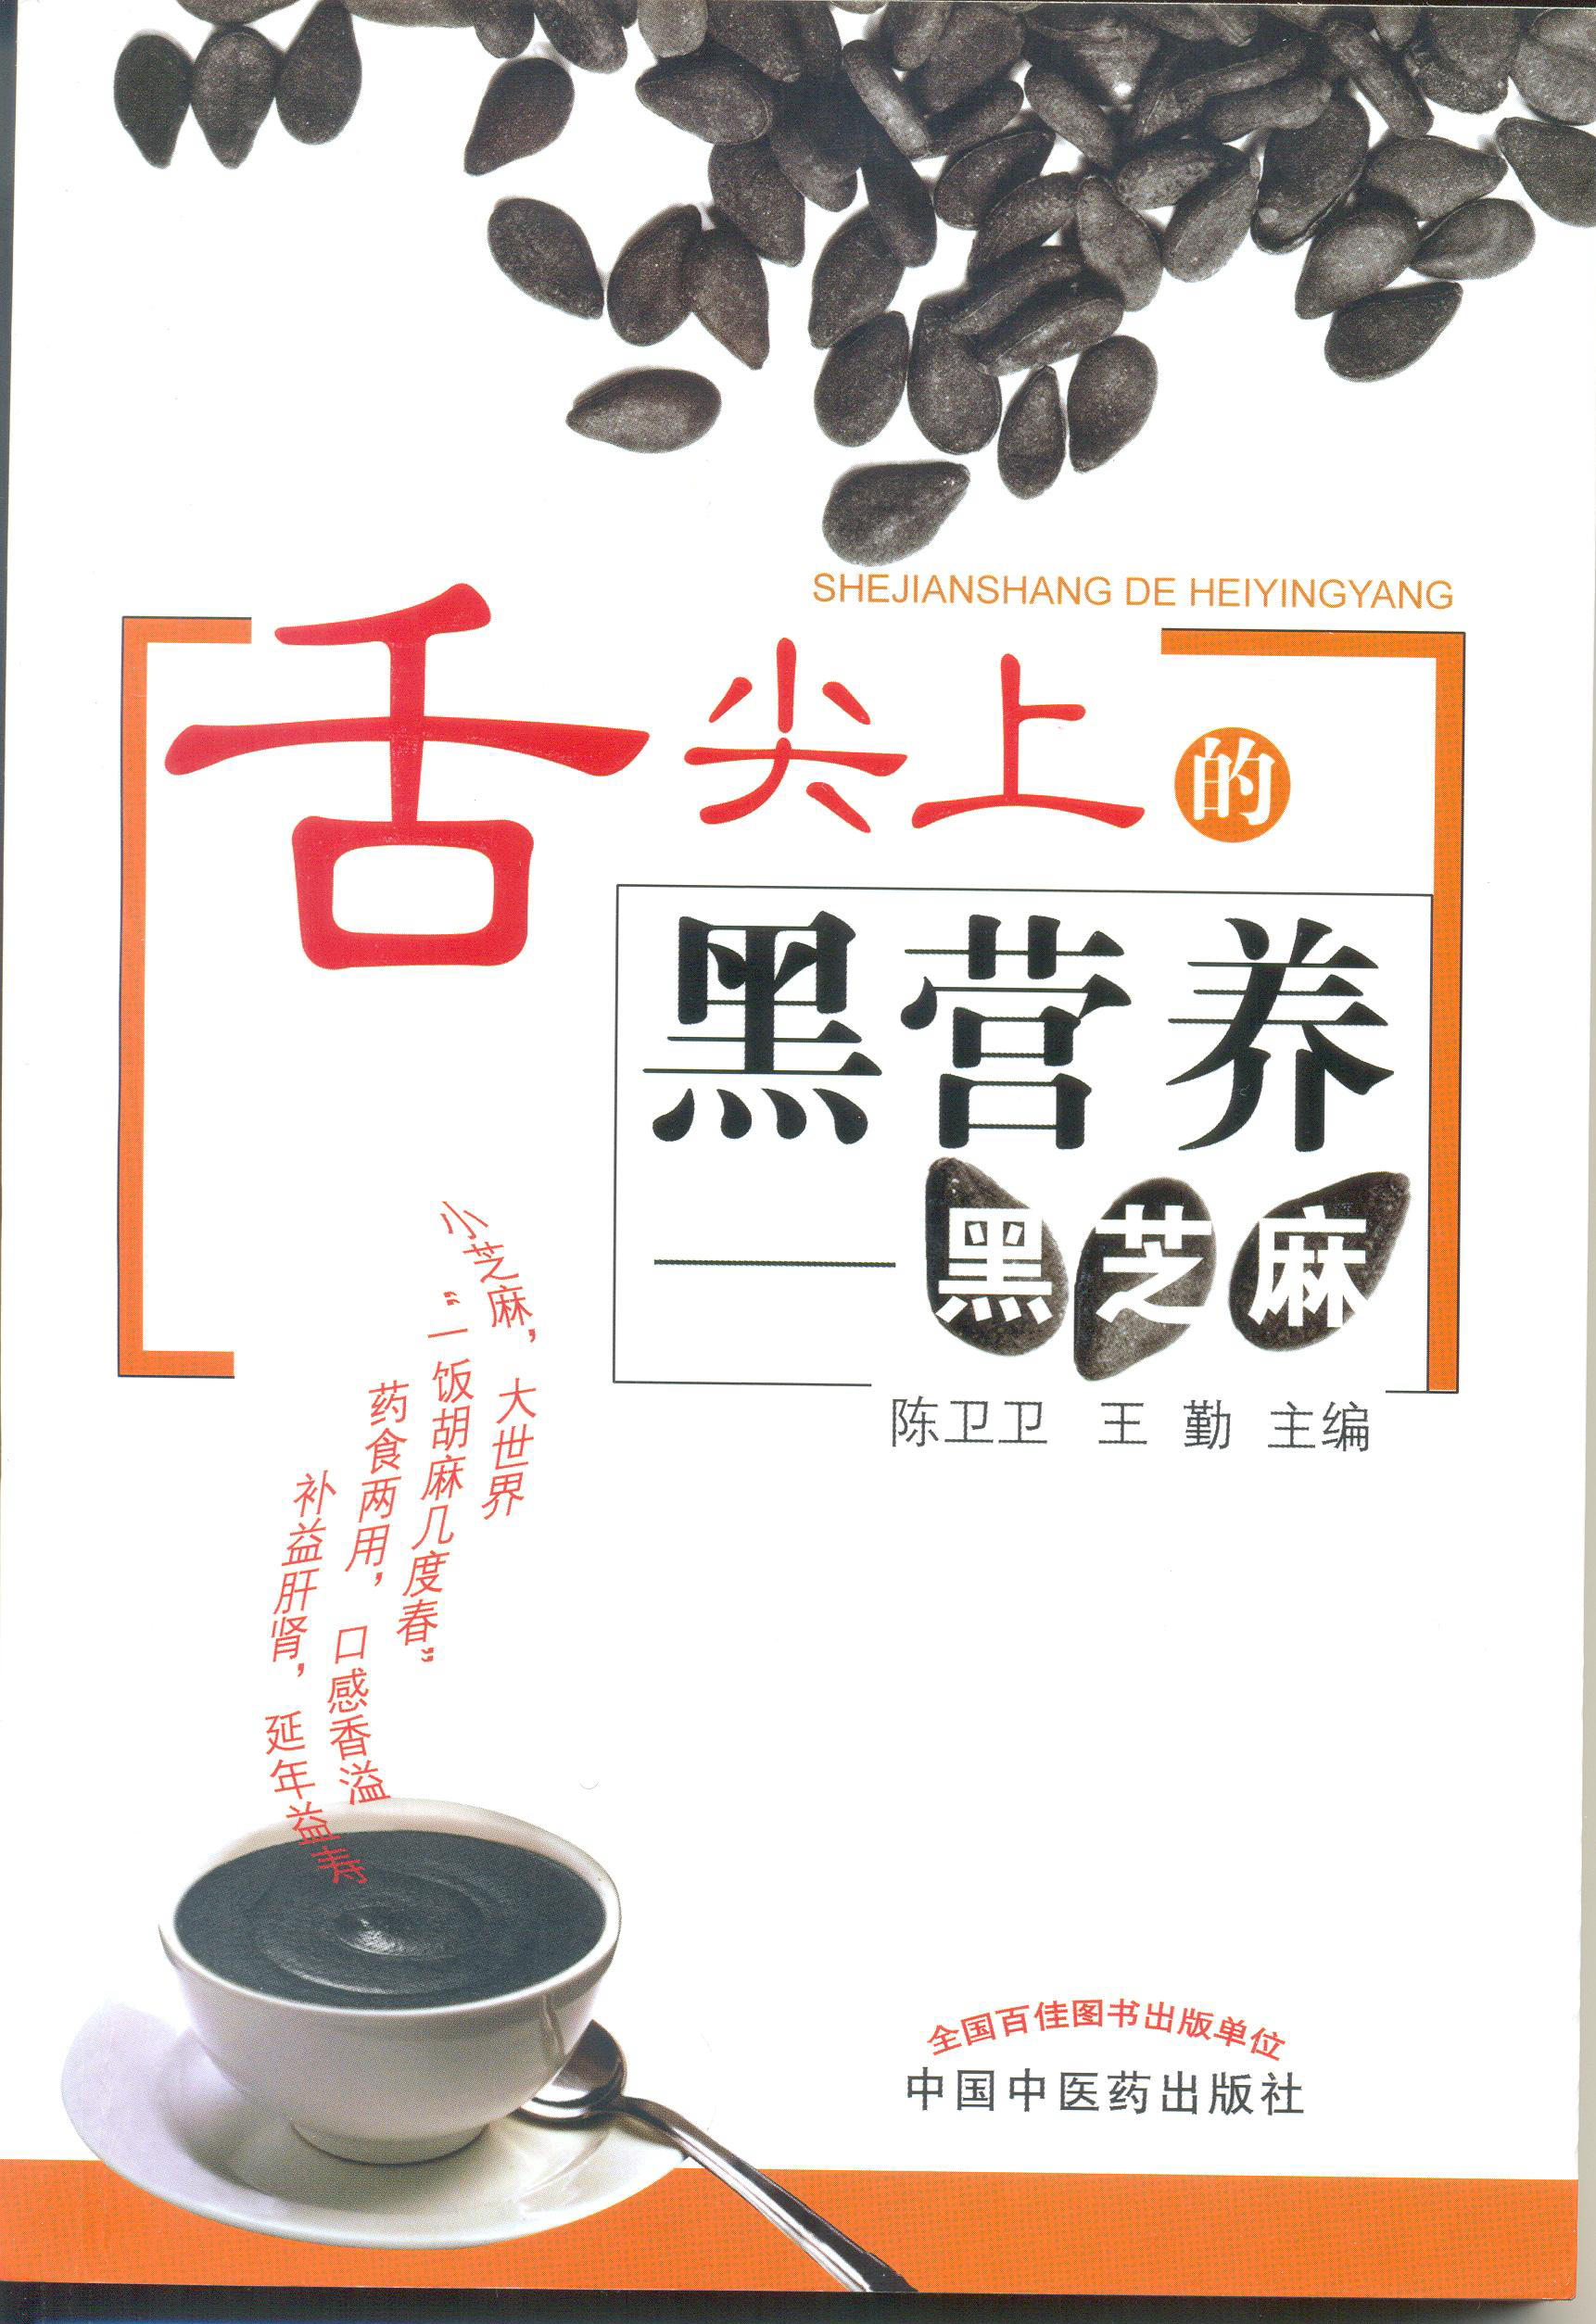 SHEJIANSHANG DE HEIYINGYANG
舌尖上的
黑营养
——黑芝麻
陈卫卫 王勤 主编
小芝麻，大世界
“一饭胡麻几度春”
药食两用，口感香溢
补益肝肾，延年益寿
全国百佳图书出版单位
中国中医药出版社